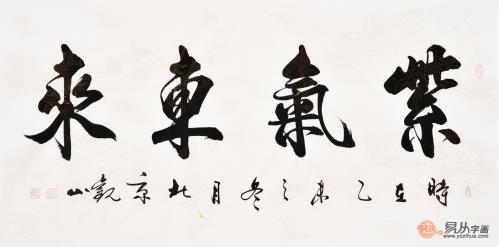 紫氣東來
時在乙未之冬月北京觀山
易从字画
www.yczihua.com